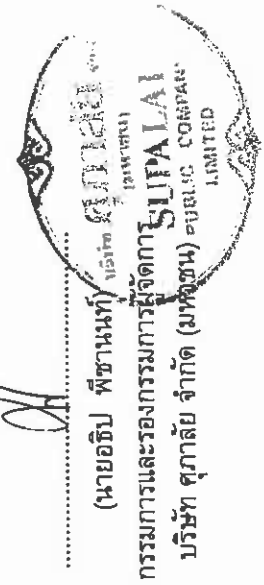 (นายอธิป พีชานนท์)
กรรมการและรองกรรมการผู้จัดการ
บริษัท ศุภาลัย จำกัด (มหาชน)
บริษัท ศุภาลัย จำกัด
(มหาชน)
SUPALAI
PUBLIC COMPANY
LIMITED